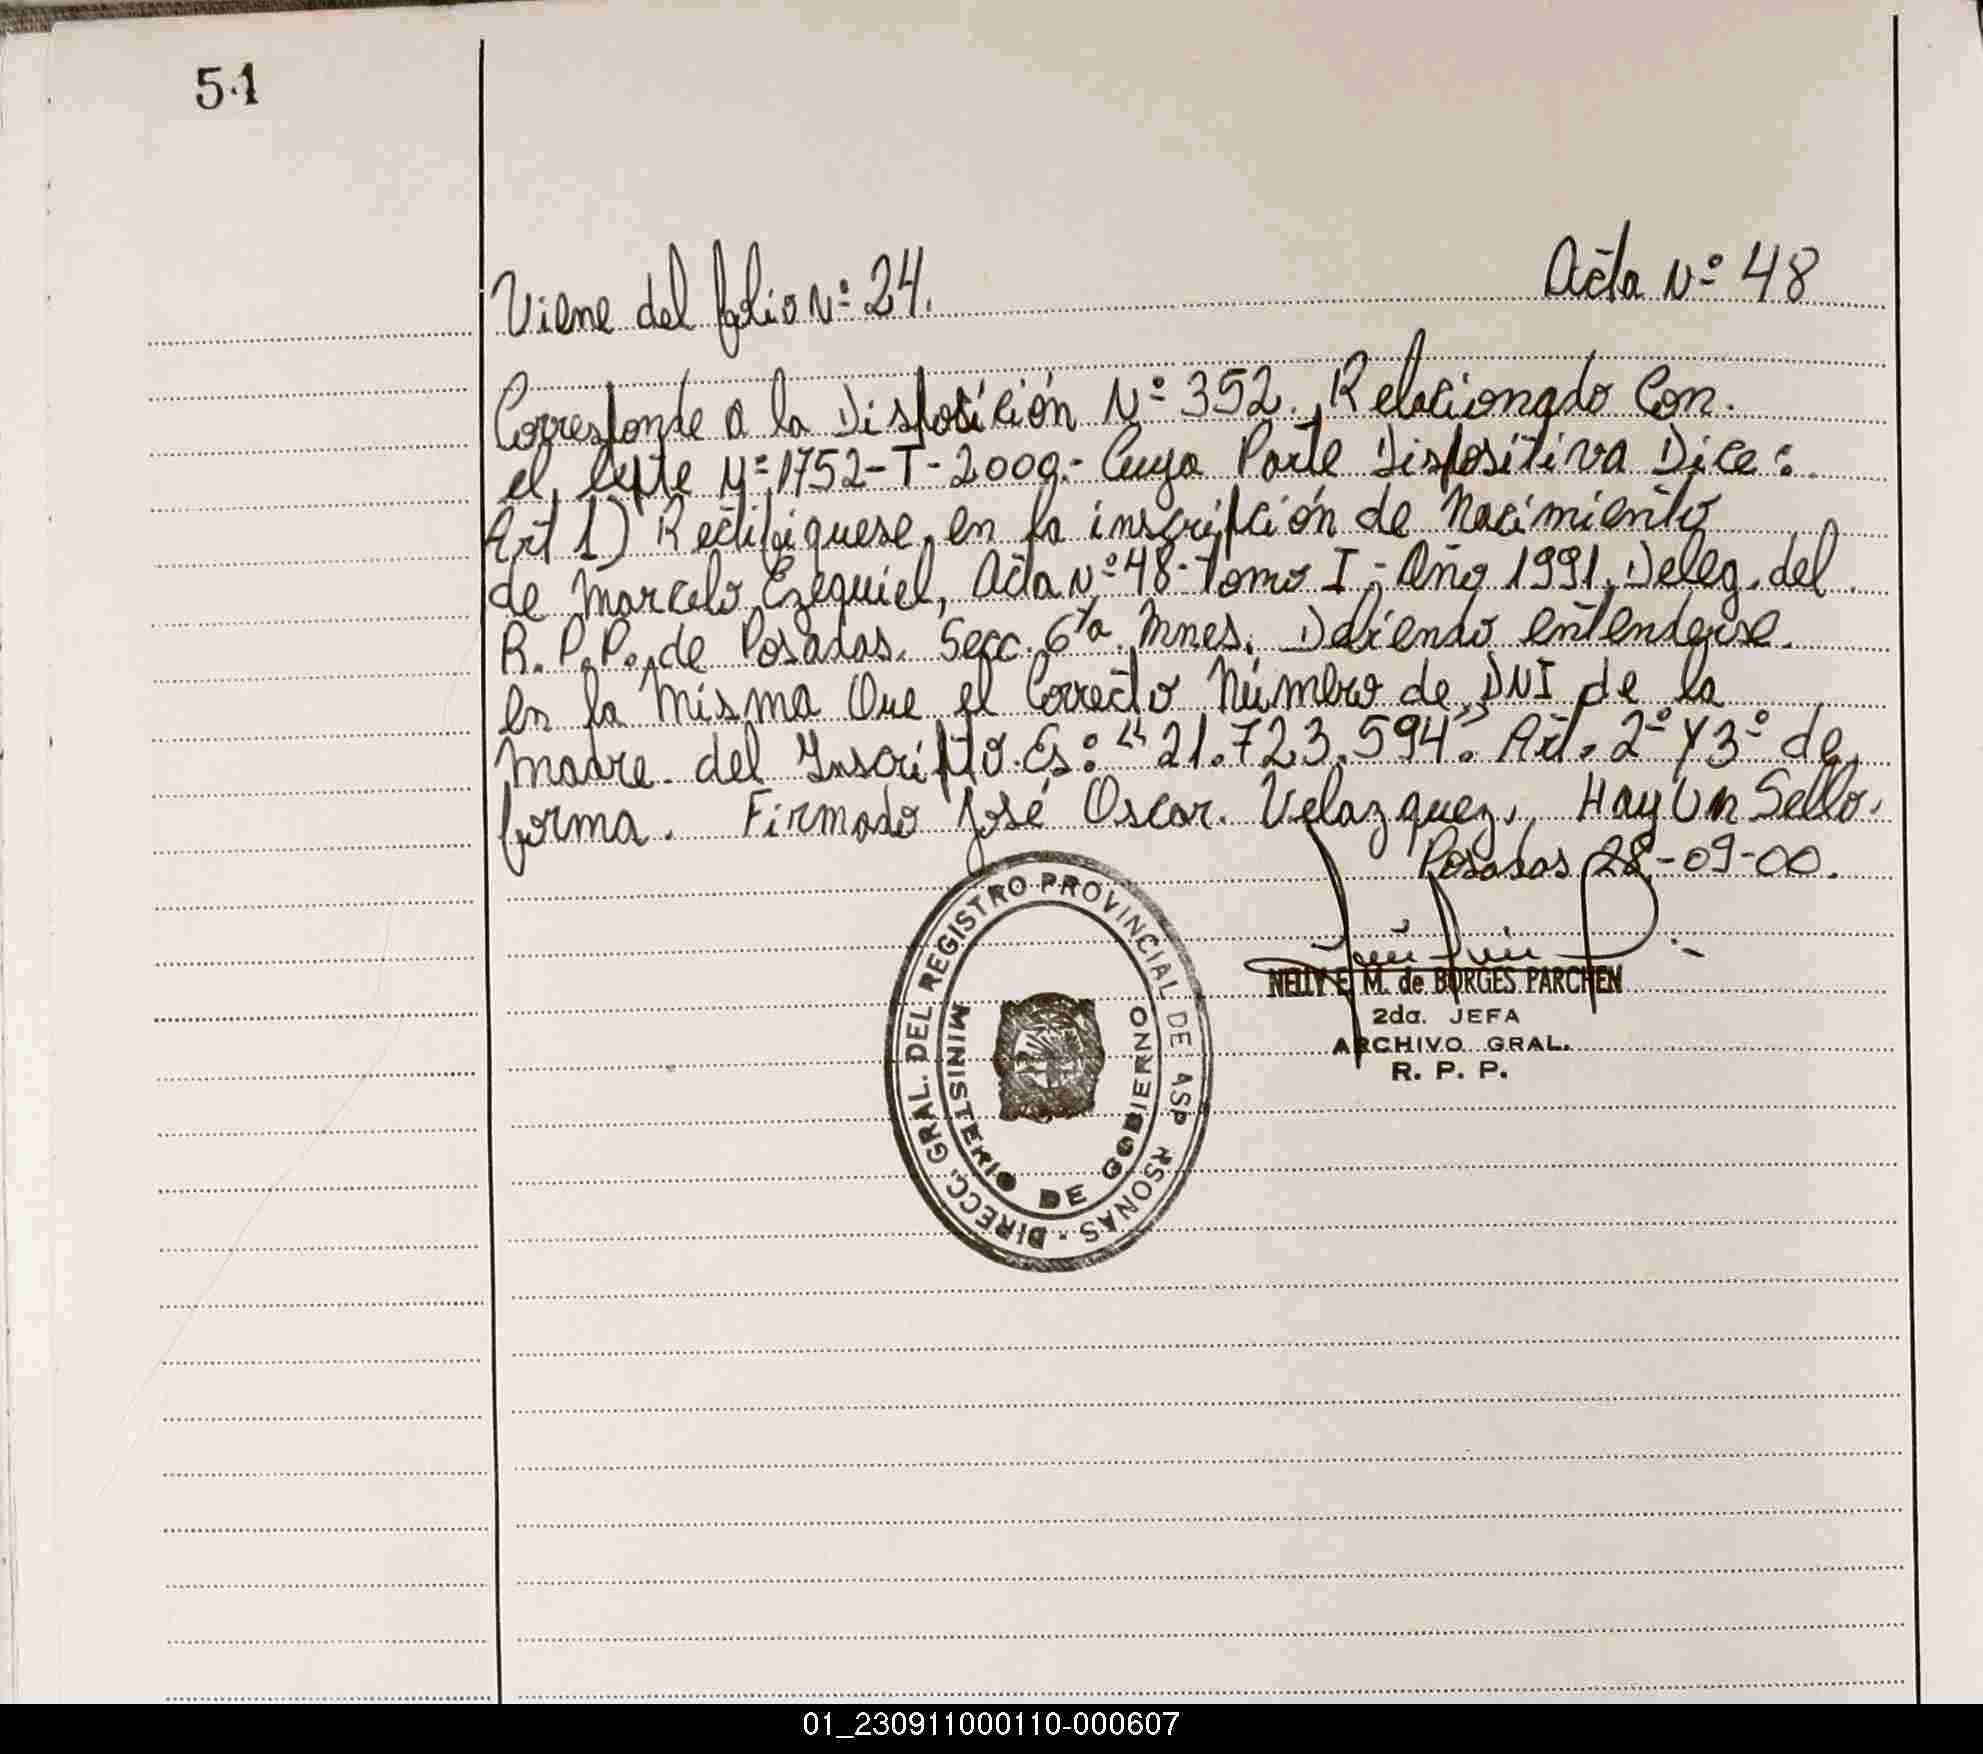 51
Viene del folio Nº 24.
Acta Nº 48
Corresponde a la Disposición Nº 352. Relacionado Con.
el Expte Nº 1752-T-2000.- Cuya Parte Dispositiva Dice:
Art 1) Rectifiquese en la inscripción de Nacimiento
de Marcelo Ezequiel, Acta Nº 48- Tomo I- Año 1991. Deleg. del
R.P.P. de Posadas. Secc. 6ta. Mnes. Debiendo entenderse.
en la Misma Que el Correcto Número de DNI de la
Madre del Inscripto. Es: "21.723.594". Art. 2º Y 3º de
forma. Firmado José Oscar. Velazquez. Hay Un Sello.
Posadas 28-09-00.
NELLY E. M. de BORGES PARCHEN
2da. JEFA
ARCHIVO GRAL.
R. P. P.
DIRECC. GRAL. DEL REGISTRO PROVINCIAL DE ASP RSONAS -
MINISTERIO DE GOBIERNO
01_230911000110-000607